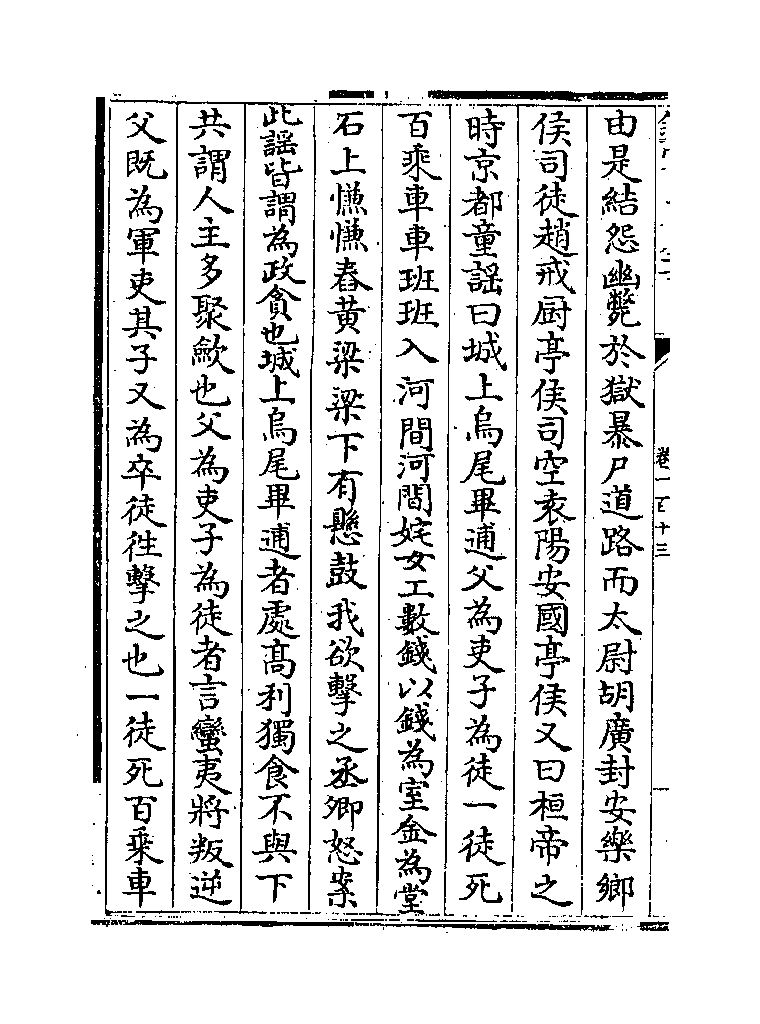 由是結怨幽斃於獄暴尸道路而太尉胡廣封安樂鄉
侯司徒趙戒厨亭侯司空袁陽安國亭侯又曰桓帝之
時京都童謡曰城上烏尾畢逋父為吏子為徒一徒死
百乘車車班班入河間河間姹女工數錢以錢為室金為堂
石上慊慊舂黄梁梁下有懸鼓我欲擊之丞卿怒案
此謡皆謂為政貪也城上烏尾畢逋者處髙利獨食不與下
共謂人主多聚歛也父為吏子為徒者言蠻夷將叛逆
父既為軍吏其子又為卒徒徃擊之也一徒死百乘車
卷一百十三